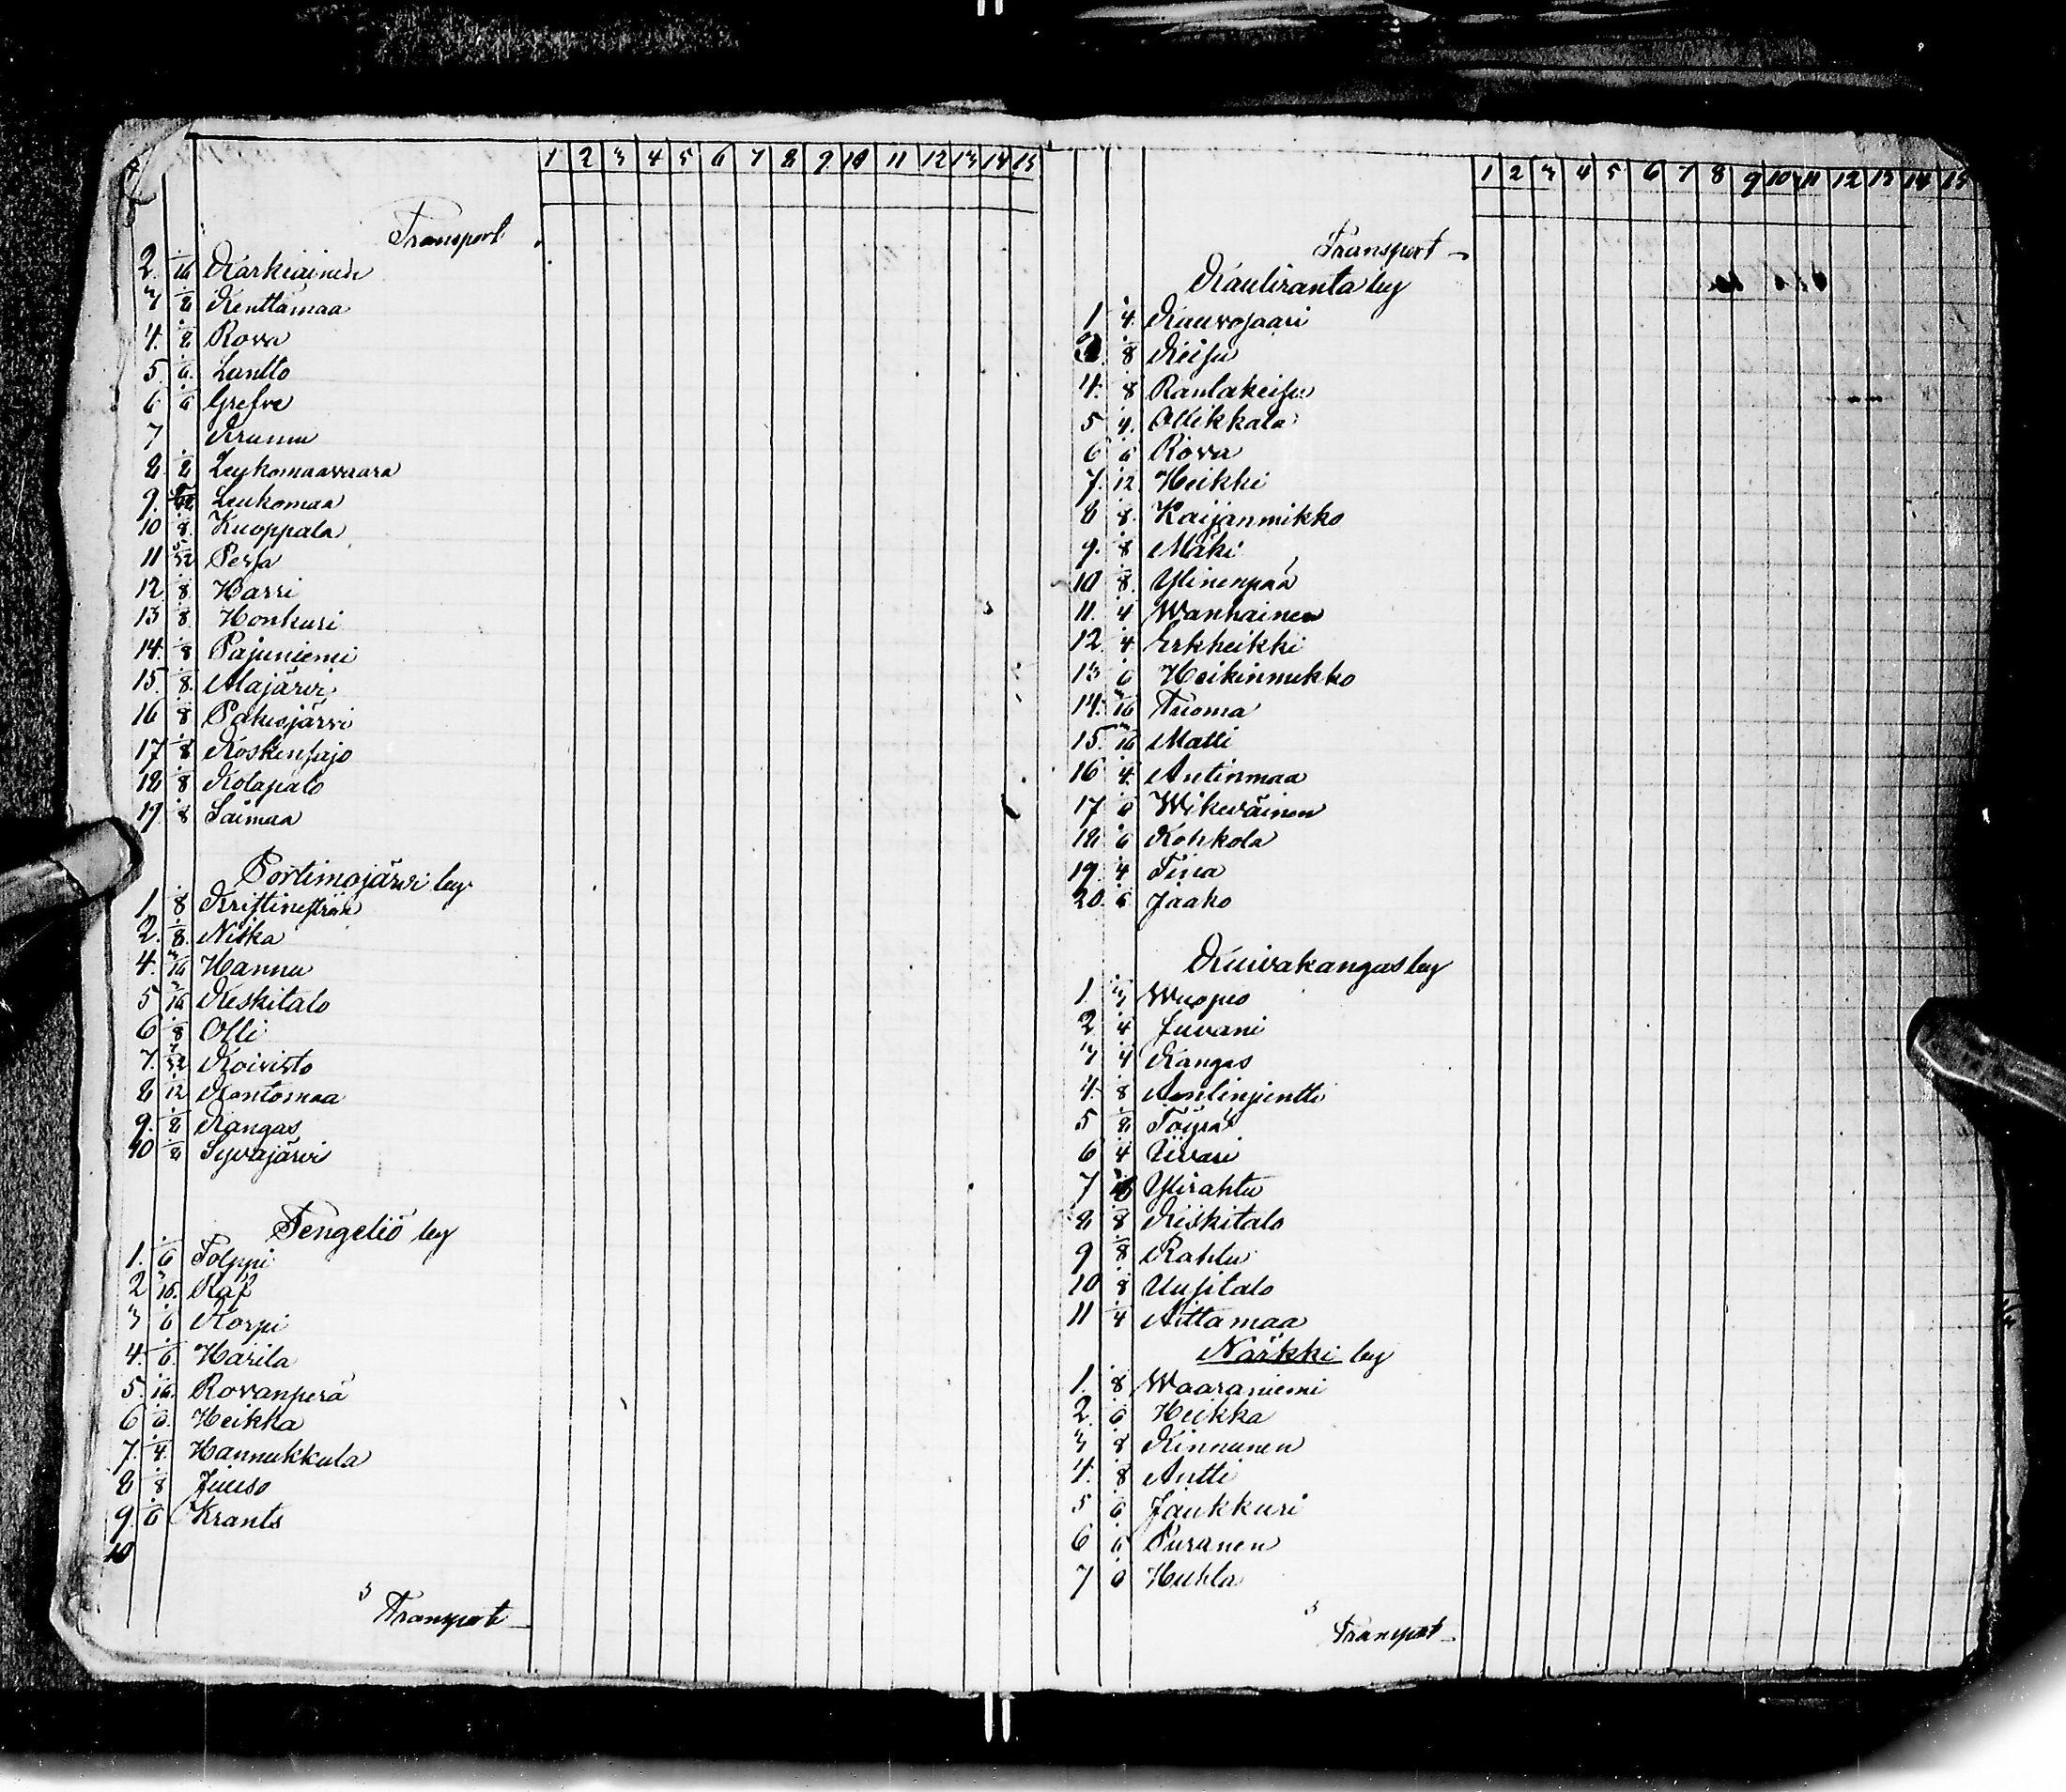 1 2 3 4 5 6 7 8 9 10 11 12 13 14 15
Transport
2. 1/16 Karkiainen
3 1/8 Kenttämaa
4. 1/8 Rova
5. 1/6 Luntto
6 1/6 Grefve
7 Krunnu
8. 1/8 Leukomaavaara
9. Leukomaa
10 1/8 Kuoppala
11 5/32 Persa
12 1/8 Harri
13 1/8 Honkuri
14. 1/8 Pajuniemi
15. 1/8 Alajärvi
16 1/8 Pakisjärvi
17 1/8 Koskenpajo
18 1/8 Kotapalo
19. 1/8 Saimaa
Portimojärvi by
1. 1/8 Kristineström
2. 1/8 Niska
4. 3/16 Hannu
5 3/16 Keskitalo
6 1/8 Olli
7. 7/32 Koivisto
8 1/12 Kontomaa
9. 1/8 Kangas
10 1/8 Syväjärvi
Tengeliö by
1. 1/6 Tolppi
2 3/16 Raf
3 1/6 Korpi
4. 1/6 Harila
5. 1/16 Rovanperä
6 1/6 Heikka
7. 1/4 Hannukkula
8 1/8 Juuso
9. 1/6 Krants
10
Transport
1 2 3 4 5 6 7 8 9 10 11 12 13 14 15
Transport
Kauliranta by
1 1/4 Kuuvojaari
3. 1/8 Keisu
4. 1/8 Rantakeisu
5 1/4 Ollikkala
6 1/6 Rova
7. 1/12 Heikki
8 1/8 Kaijanmikko
9. 1/8 Mäki
10 1/8 Ylinenpää
11. 1/4 Wanhainen
12. 1/4 Erkheikki
13 1/6 Heikinmikko
14. 3/16 Tuoma
15. 3/16 Matti
16 1/4 Antinmaa
17. 1/6 Wikeväinen
18. 1/6 Kohkola
19. 1/4 Tiina
20. 1/6 Jaako
Kuivakangas by
1. 1/3 Wuopio
2 1/4 Juvani
3 1/4 Kangas
4. 1/8 Antinjuntti
5 1/8 Töyrä
6 1/4 Iivari
7 Ylirahtu
8 1/8 Keskitalo
9 1/8 Rahtu
10 1/8 Uusitalo
11 1/4 Aittamaa
Närkki by
1. 1/8 Waaraniemi
2. 1/6 Heikka
3 1/8 Kinnunen
4. 1/8 Antti
5 1/6 Jaukkuri
6 1/6 Puranen
7 1/6 Huhta
Transport